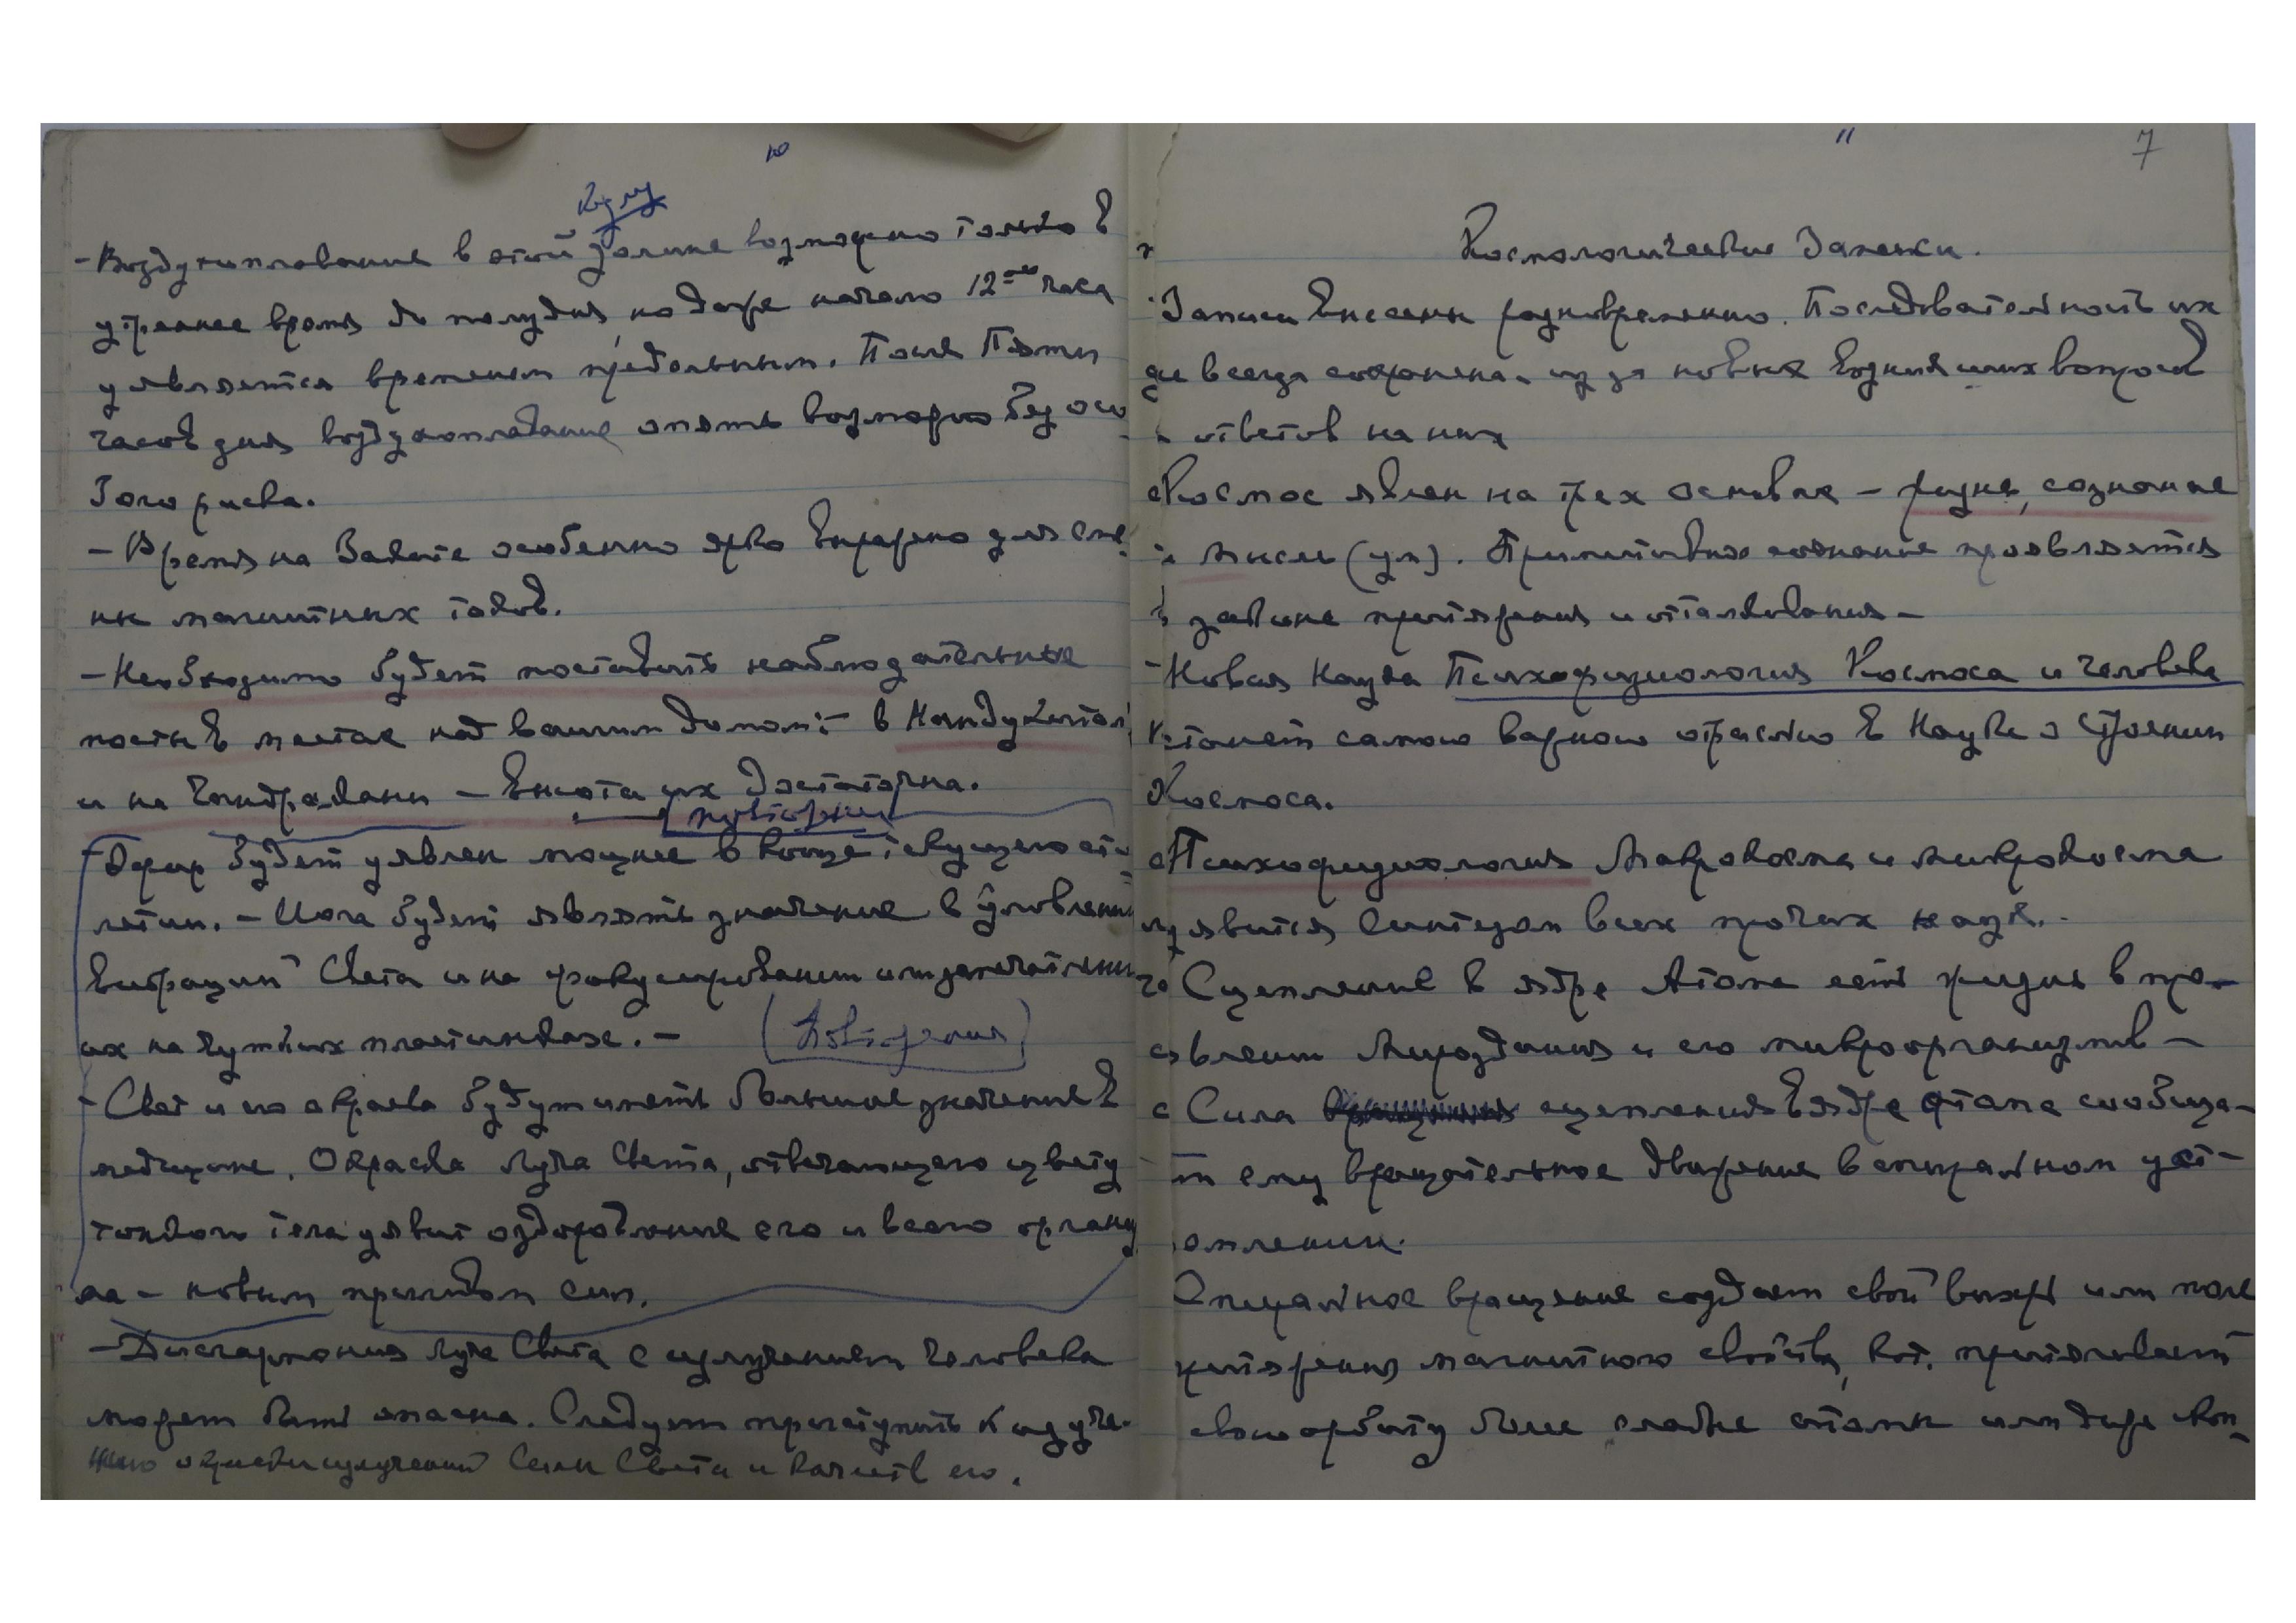 10
Кулу
- Воздухоплавание в этой долине возможно только в
утреннее время до полудня, но даже начало 12-го часа
уявляется временем предельным. После Пяти
часов дня воздухоплавание опять возможно без осо
бого риска.
- Время на Закате особенно ярко выражено для
ны магнитных токов.
- Необходимо будет поставить наблюдательные
посты в местах над вашим домом: - в
и на - Высота их достаточна.
повторение
- Эфир будет уявлен мощнее в конце текущего сто
летия. - Йога будет являть значение в уловлении
вибраций Света и на фокусировании и запечатлении
их на чутких пластинках. - (Повторение)
- Свет и его окраска будут иметь большое значение в
медицине. Окраска луча Света, отвечающего цвету
тонкого тела уявит оздоровление его и всего организ
ма - новым приливом сил.
- Дисгармония луча Света с излучением человека
может быть опасна. Следует приступить к изуче-
нию окраски излучений Силы Света и качеств его.
11
7
Космологические Записи.
Записи внесены разновременно. Последовательность их
не всегда сохранена из за новых возникших вопросов
и ответов на них
Космос явлен на трех основах - жизне, сознание
и мысль (ум). Примитивное сознание проявляется
в законе притяжения и отталкивания -
- Новая Наука Психофизиология Космоса и Человека
станет самою важною отраслью в Науке о строении
Космоса.
Психофизиология Макрокосма и микрокосма
явится синтезом всех прочих наук.
Сцепление в ядре Атома есть жизнь в про-
явлении Мироздания и его микроорганизмов -
Сила сцепления в ядре атома сообща-
ет ему вращательное движение в спиральном уст-
ремлении.
Спиральное вращение создает свой вихрь или поле
притяжения магнитного свойства, кот. притягивает
в свою орбиту более слабые атомы или даже